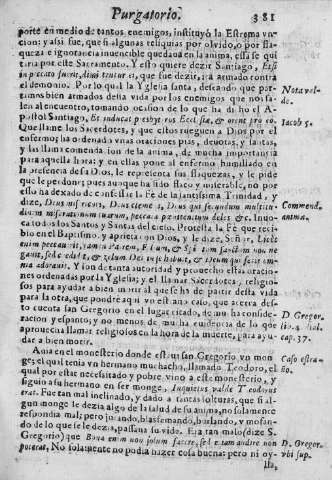 Purgatorio. 381
porte en medio de tantos enemigos, instituyò la Estrema vn-
cion: y assi fue, que si algunas reliquias por oluido, o por fla-
queza e ignorancia inuencible quedauã en la anima, essa se qui
taria por este Sacramento. Y esto quiere dezir Santiago, Et si
in peccato fuerit, dimittetur ei, que fue dezir, irà armado contra
el demonio. Por lo qual la Yglesia santa, deseando que par-
tamos bien armados desta vida por los enemigos que nos sa-
len al encuentro, tomando ocasion de lo que ha dicho el A-
postol Santiago, Et inducat presbyteros Ecclesiæ, & orent pro eo.
Que llame los Sacerdotes, y que estos rueguen a Dios por el
enfermo, ha ordenado vnas oraciones pias, deuotas, y santas,
y las llaman comendacion de la anima, de mucha importancia
para aquella hora: y en ellas pone al enfermo humillado en
la presencia de su Dios, le representa sus flaquezas, y le pide
que le perdone; pues aunque ha sido flaco y miserable, no por
esso ha dexado de confessar la Fè de la santissima Trinidad, y
dize, Deus misericors, Deus clemens, Deus qui secundum multitu-
dinem miserationum tuarum, peccata pœnitentium deles &c. Inuo-
ca todos los Santos y Santas del cielo. Protesta la Fè que reci-
bio en el Baptismo, y aprieta con Dios, y le dize, Señor, Licet
enim peccauerit, tamen Patrem, Filium, & Spiritum sanctum non ne-
gauit, sed credidit, & zelum Dei in se habuit, & Deum qui fecit om-
nia adorauit. Y son de tanta autoridad y prouecho estas oracio-
nes ordenadas por la Yglesia, y el llamar Sacerdotes, y religio-
sos para ayudar a bien morir al que se ha de partir desta vida
para la otra, que pondre aqui vn estraño caso, que acerca des-
to cuenta san Gregorio en el lugar citado, de mucha conside-
racion y espanto, y no menos de mucha euidencia de lo que
aprouecha llamar religiosos en la hora de la muerte, para ayu-
dar a bien morir.
Auia en el monesterio donde estaua san Gregorio vn mon-
ge; el qual tenia vn hermano muchacho, llamado Teodoro, el
qual por estar necessitado y pobre vino a este monesterio, y
siguio a su hermano en ser monge. Inquietus valde Teodorus
erat. Fue tan mal inclinado, y dado a tantas solturas, que si al-
gun monge le dezia algo de la salud de su anima, no solamente
respondia mal; pero jurando, blasfemando, burlando, y mofan-
do de lo que se le dezia, passaua su vida. Era tan malo (dize S.
Gregorio) que Bona enim non solum facere, sed etiam audire non
poterat, No solamente no podia hazer cosa buena, pero ni oy-
lla,
Nota val-
de.
Iacob 5.
Commend.
anima.
D. Gregor.
lib. 4. dial.
cap. 37.
Caso estra-
ño.
D. Gregor.
vbi sup.